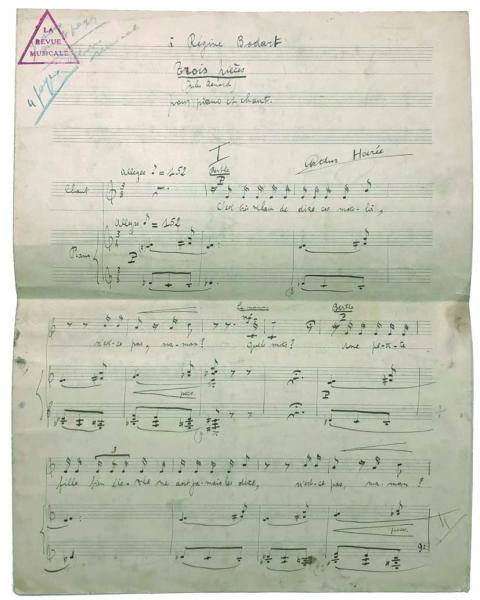 LA
REVUE
MUSICALE
à Régine Bodart
Trois pièces
(Jules Renard)
pour piano et chant.
I
Arthur Hoérée
Allègre ♪ = 152
Berthe
P
Chant
C'est très vilain de dire ces mots-là,
Allègre ♪ = 152
Piano
P
La maman
mf
Berthe
P
n'est-ce pas, ma-man?
Quels mots?
Une pe-ti-te
P
3
fille bien éle-vée ne doit ja-mais les dire,
n'est-ce pas, ma-man?